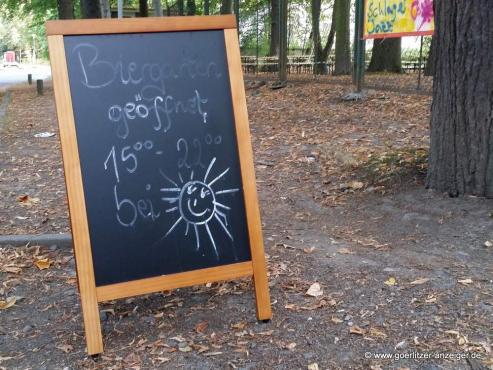 Biergarten
geöffnet
15⁰⁰ - 22⁰⁰
bei
© www.goerlitzer-anzeiger.de